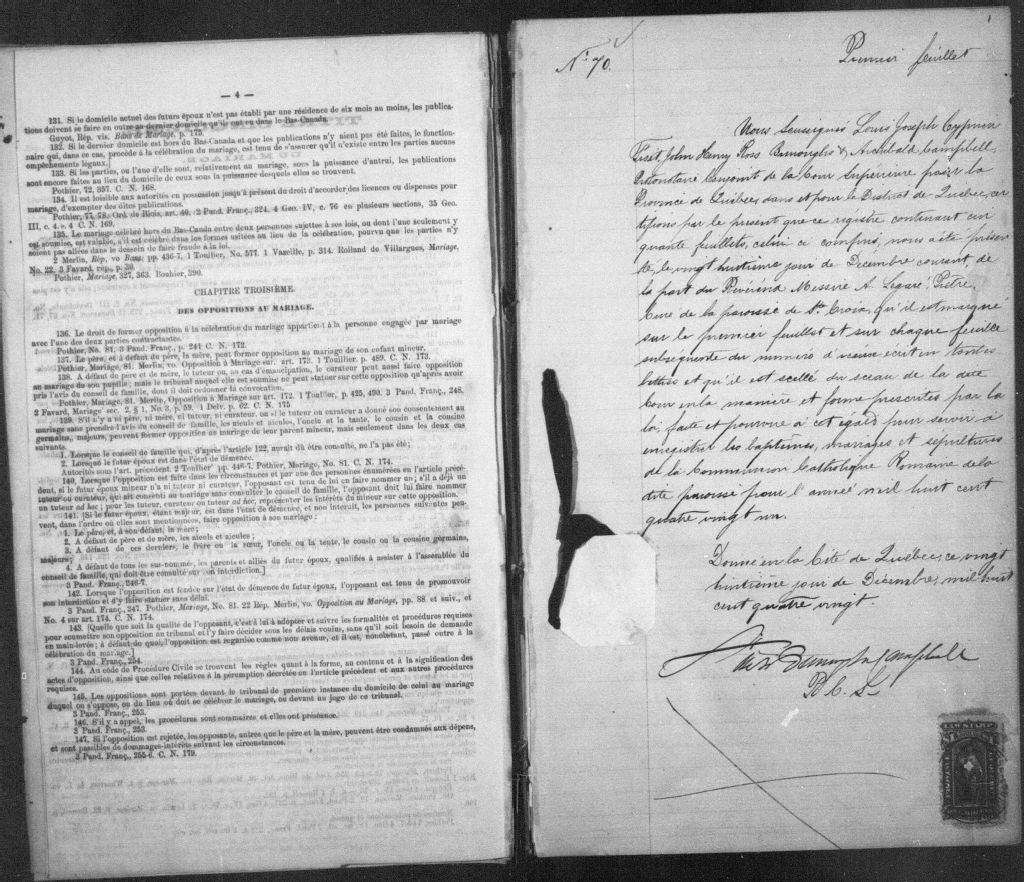 — 4 —
131. Si le domicile actuel des futurs époux n'est pas établi par une résidence de six mois au moins, les publica-
tions doivent se faire en outre au dernier domicile qu'ils ont eu dans le Bas-Canada.
Guyot, Rép. vis. Bans de Mariage, p. 175.
132. Si le dernier domicile est hors du Bas-Canada et que les publications n'y aient pas été faites, le fonction-
naire qui, dans ce cas, procède à la célébration du mariage, est tenu de s'assurer qu'il n'existe entre les parties aucuns
empêchements légaux.
133. Si les parties, ou l'une d'elle sont, relativement au mariage, sous la puissance d'autrui, les publications
sont encore faites au lieu du domicile de ceux sous la puissance desquels elles se trouvent.
Pothier, 72, 357. C. N. 168.
134. Il est loisible aux autorités en possession jusqu'à présent du droit d'accorder des licences ou dispenses pour
mariage, d'exempter des dites publications.
Pothier, 77, 78. Ord. de Blois, art. 40. 2 Pand. Franç., 324. 4 Geo. IV, c. 76 en plusieurs sections, 35 Geo.
III, c. 4. s. 4 C. N. 169.
135. Le mariage célébré hors du Bas-Canada entre deux personnes sujettes à ses lois, ou dont l'une seulement y
est soumise, est valable, s'il est célébré dans les formes usitées au lieu de la célébration, pourvu que les parties n'y
soient pas allées dans le dessein de faire fraude à la loi.
2 Merlin, Rép, vo Bans, pp. 436-7. 1 Toulier, No. 577. 1 Vazeille, p. 314. Rolland de Villargues, Mariage,
No. 22. 3 Favard, rép., p. 30.
Pothier, Mariage, 327, 363. Bouhier, 390.
CHAPITRE TROISIÈME.
DES OPPOSITIONS AU MARIAGE.
136. Le droit de former opposition à la célébration du mariage appartient à la personne engagée par mariage
avec l'une des deux parties contractantes.
Pothier, No. 81, 3 Pand. Franç., p. 241 C. N. 172.
137. Le père, et à défaut du père, la mère, peut former opposition au mariage de son enfant mineur.
Pothier, Mariage, 81. Merlin, vo. Opposition à Mariage sur. art. 173. 1 Touillier, p. 489. C. N. 173.
138. A défaut de père et de mère, le tuteur ou, au cas d'émancipation, le curateur peut aussi faire opposition
au mariage de son pupille; mais le tribunal auquel elle est soumise ne peut statuer sur cette opposition qu'après avoir
pris l'avis du conseil de famille, dont il doit ordonner la convocation.
Pothier, Mariage, 81. Merlin, Opposition à Mariage sur art. 172. 1 Toullier, p. 425, 490. 3 Pand. Franç., 248.
2 Favard, Mariage sec. 2, § 1. No. 3, p. 59. 1 Delv. p. 62. C. N. 175
139. S'il n'y a ni père, ni mère, ni tuteur, ni curateur, ou si le tuteur ou curateur a donné son consentement au
mariage sans prendre l'avis du conseil de famille, les aïeuls et aïeules, l'oncle et la tante, le cousin et la cousine
germains, majeurs, peuvent former opposition au mariage de leur parent mineur, mais seulement dans les deux cas
suivants.
1. Lorsque le conseil de famille qui, d'après l'article 122, aurait dû être consulté, ne l'a pas été;
2. Lorsque le futur époux est dans l'état de démence.
Autorités sous l'art. précédent. 2 Toullier pp. 446-7. Pothier, Mariage, No. 81. C. N. 174.
140. Lorsque l'opposition est faite dans les circonstances et par une des personnes énumérées en l'article précé-
dent, si le futur époux mineur n'a ni tuteur ni curateur, l'opposant est tenu de lui en faire nommer un; s'il a déjà un
tuteur ou curateur, qui ait consenti au mariage sans consulter le conseil de famille, l'opposant doit lui faire nommer
un tuteur ad hoc; pour les tuteur, curateur ou tuteur ad hoc, représenter les intérêts du mineur sur cette opposition.
141. [Si le futur époux, étant majeur, est dans l'état de démence, et non interdit, les personnes suivantes peu-
vent, dans l'ordre où elles sont mentionnées, faire opposition à son mariage:
1. Le père, et, à son défaut, la mère;
2. A défaut de père et de mère, les aïeuls et aïeules;
3. A défaut de ces derniers, le frère ou la sœur, l'oncle ou la tante, le cousin ou la cousine germains,
majeurs;
4. A défaut de tous les sus-nommés, les parents et alliés du futur époux, qualifiés à assister à l'assemblée du
conseil de famille, qui doit être consulté sur son interdiction.]
3 Pand. Franç., 246-7.
142. Lorsque l'opposition est fondée sur l'état de démence du futur époux, l'opposant est tenu de promouvoir
son interdiction et d'y faire statuer sans délai.
3 Pand. Franç., 247. Pothier, Mariage, No. 81. 22 Rép. Merlin, vo. Opposition au Mariage, pp. 88 et suiv., et
No. 4 sur art. 174. C. N. 174.
143. [Quelle que soit la qualité de l'opposant, c'est à lui à adopter et suivre les formalités et procédures requises
pour soumettre son opposition au tribunal et l'y faire décider sous les délais voulus, sans qu'il soit besoin de demande
en main-levée; à défaut de quoi, l'opposition est regardée comme non avenue, et il est, nonobstant, passé outre à la
célébration du mariage.]
3 Pand. Franç., 254.
144. Au code de Procédure Civile se trouvent les règles quant à la forme, au contenu et à la signification
des actes d'opposition, ainsi que celles relatives à la péremption décrétée en l'article précédent et aux autres procédures
requises.
145. Les oppositions sont portées devant le tribunal de première instance du domicile de celui au mariage
duquel on s'oppose, ou du lieu où doit se célébrer le mariage, ou devant un juge de ce tribunal.
3 Pand. Franç., 253.
146. S'il y a appel, les procédures sont sommaires et elles ont préséance.
3 Pand. Franç., 253.
147. Si l'opposition est rejetée, les opposants, autres que le père et la mère, peuvent être condamnés aux dépens,
et sont passibles de dommages-intérêts suivant les circonstances.
3 Pand. Franç., 255-6. C. N. 179.
1
No. 70.
Premier feuillet
Nous Soussignés Louis Joseph Cyprien
Fiset, John Henry Ross Burroughs & Archibald Campbell,
Protonotaire Conjoint de la Cour Supérieure pour la
Province de Québec, dans et pour le District de Québec, cer
tifions par le présent que ce registre contenant cin
quante feuillets, celui ci compris, nous a été présen
té, le vingt huitième jour de Décembre courant, de
la part du Révérend Messire A. Legaré, Prêtre,
Curé de la paroisse de Ste Croix, qu'il est marqué
sur le premier feuillet et sur chaque feuille
subséquente du numéro d'iceux écrit en toutes
lettres et qu'il est scellé du sceau de la dite
Cour en la manière et forme prescrites par la
loi, faite et pourvue à cet égard pour servir à
enregistrer les baptêmes, mariages et sépultures
de la Communion Catholique Romaine de la
dite paroisse pour l'année mil huit cent
quatre vingt un.
Donné en la Cité de Québec, ce vingt
huitième jour de Décembre, mil huit
cent quatre vingt.
Fiset Burroughs Campbell
P. C. S.
LAW STAMP